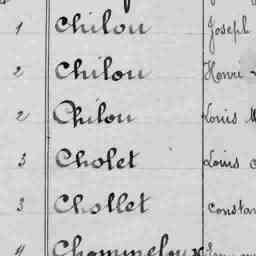 1 Chilou Joseph
2 Chilou Henri
2 Chilou Louis
3 Cholet Louis
3 Chollet Constan
4 Chommeloux